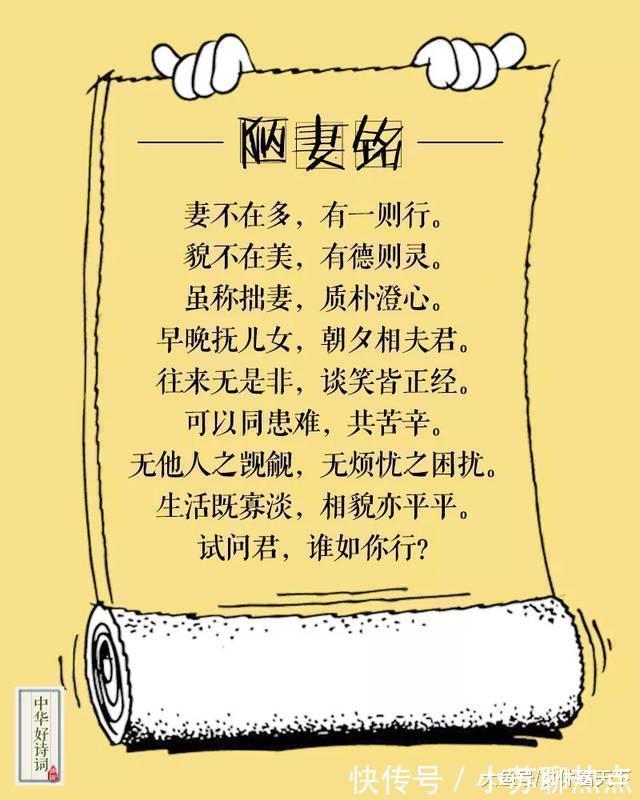 陋妻铭
妻不在多，有一则行。
貌不在美，有德则灵。
虽称拙妻，质朴澄心。
早晚抚儿女，朝夕相夫君。
往来无是非，谈笑皆正经。
可以同患难，共苦辛。
无他人之觊觎，无烦忧之困扰。
生活既寡淡，相貌亦平平。
试问君，谁如你行？
中华好诗词
快传号／小苏聊热点